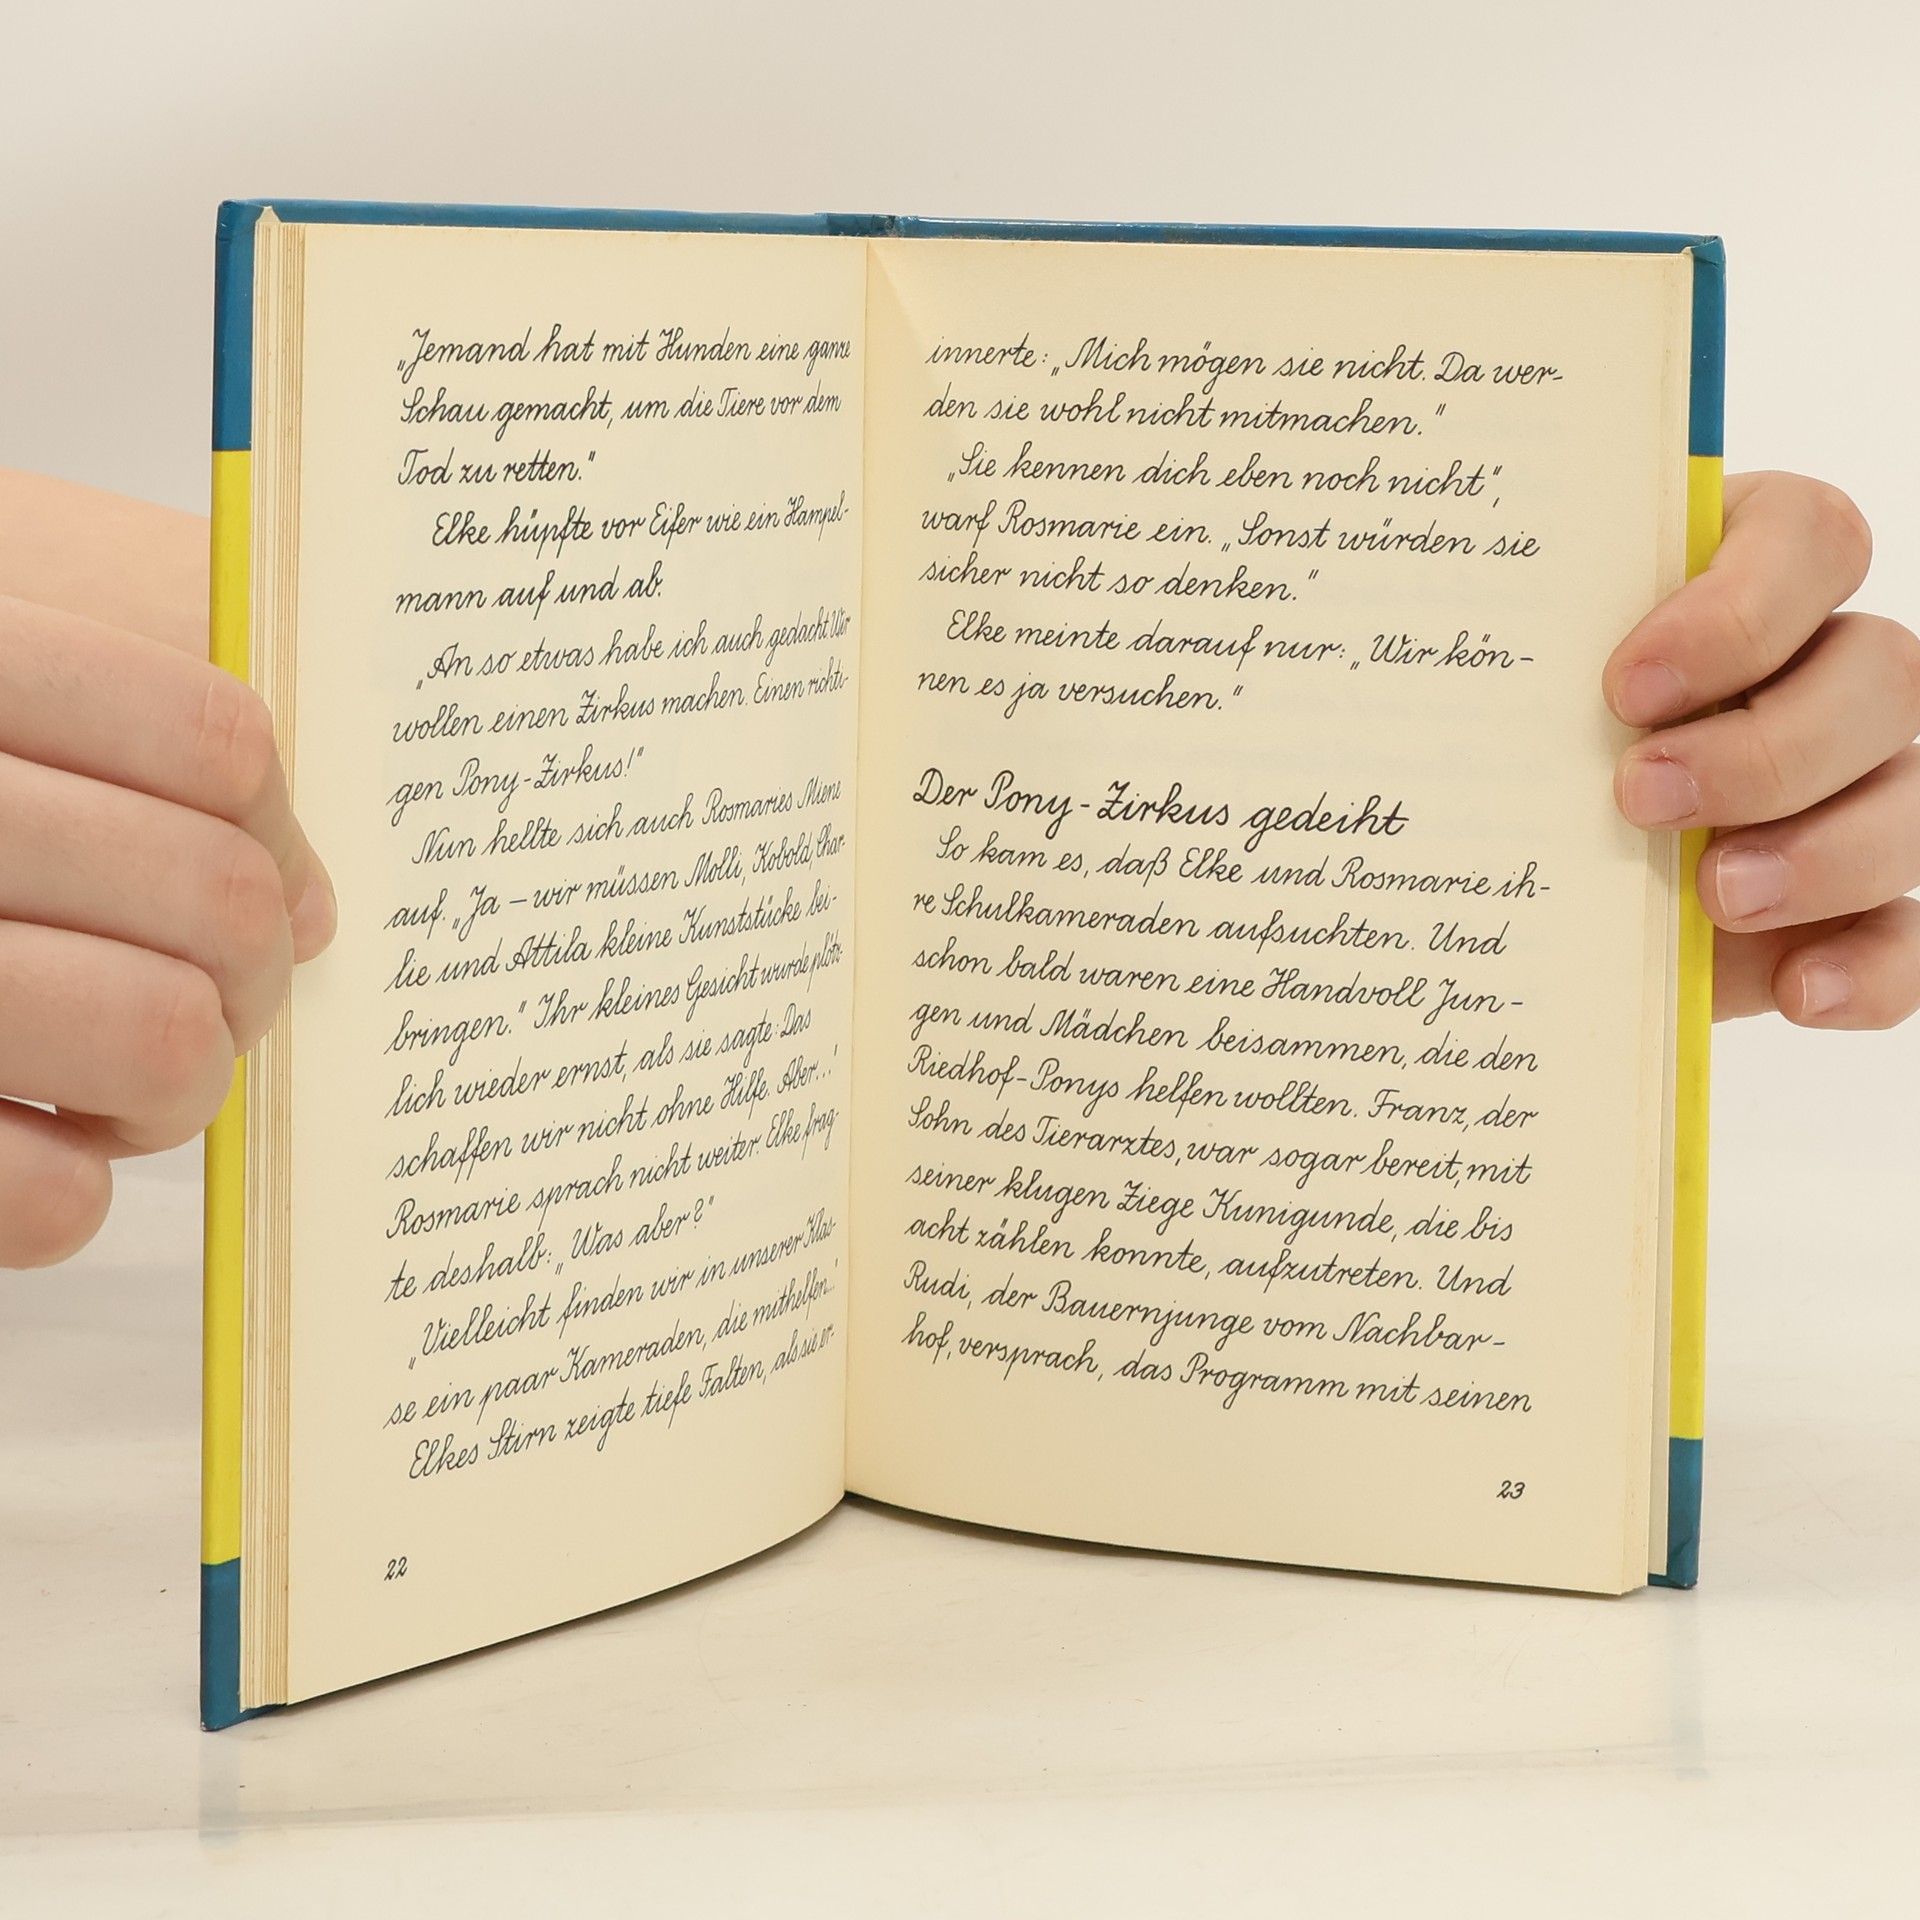 „Jemand hat mit Hunden eine ganze
Schau gemacht, um die Tiere vor dem
Tod zu retten."
Elke hüpfte vor Eifer wie ein Hampel-
mann auf und ab.
„An so etwas habe ich auch gedacht Wir
wollen einen Zirkus machen. Einen richti-
gen Pony-Zirkus!"
Nun hellte sich auch Rosmaries Miene
auf. „Ja – wir müssen Molli, Kobold, Char-
lie und Attila kleine Kunststücke bei-
bringen." Ihr kleines Gesicht wurde plötz-
lich wieder ernst, als sie sagte: Das
schaffen wir nicht ohne Hilfe. Aber..."
Rosmarie sprach nicht weiter. Elke frag-
te deshalb: „Was aber?"
„Vielleicht finden wir in unserer Klas-
se ein paar Kameraden, die mithelfen."
Elkes Stirn zeigte tiefe Falten, als sie er-
22
innerte: „Mich mögen sie nicht. Da wer-
den sie wohl nicht mitmachen."
„Sie kennen dich eben noch nicht",
warf Rosmarie ein. „Sonst würden sie
sicher nicht so denken."
Elke meinte darauf nur: „Wir kön-
nen es ja versuchen."
Der Pony-Zirkus gedeiht
So kam es, daß Elke und Rosmarie ih-
re Schulkameraden aufsuchten. Und
schon bald waren eine Handvoll Jun-
gen und Mädchen beisammen, die den
Riedhof-Ponys helfen wollten. Franz, der
Sohn des Tierarztes, war sogar bereit, mit
seiner klugen Ziege Kunigunde, die bis
acht zählen konnte, aufzutreten. Und
Rudi, der Bauernjunge vom Nachbar-
hof, versprach, das Programm mit seinen
23